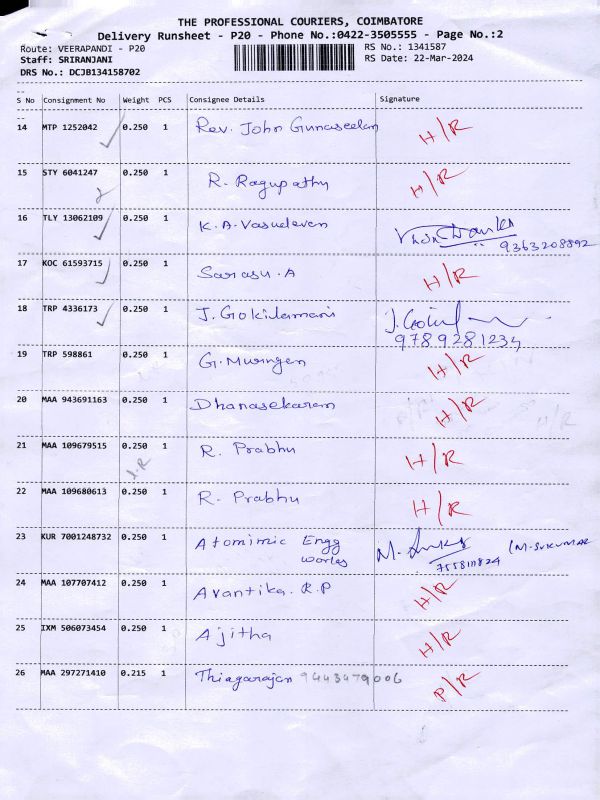 THE PROFESSIONAL COURIERS, COIMBATORE
Delivery Runsheet - P20 - Phone No.:0422-3505555 - Page No.:2
Route: VEERAPANDI - P20 RS No.: 1341587
Staff: SRIRANJANI RS Date: 22-Mar-2024
DRS No.: DCJB134158702
S No Consignment No Weight PCS Consignee Details Signature
14 MTP 1252042 0.250 1 Rev. John Gunaseelan H/R
15 STY 6041247 0.250 1 R. Ragupathy H/R
16 TLY 13062109 0.250 1 K.A. Vasudevan
9363208892
17 KOC 61593715 0.250 1 Sarasu.A H/R
18 TRP 4336173 0.250 1 J. Gokilamani J. Gokil
9789281234
19 TRP 598861 0.250 1 G. Murugen H/R
20 MAA 943691163 0.250 1 Dhanasekaran H/R H/R
21 MAA 109679515 0.250 1 R. Prabhu H/R
22 MAA 109680613 0.250 1 R. Prabhu H/R
23 KUR 7001248732 0.250 1 Atomimic Engg M. (M. SUKUMAR
works 7558111824
24 MAA 107707412 0.250 1 Avantika. R.P H/R
25 IXM 506073454 0.250 1 Ajitha H/R
26 MAA 297271410 0.215 1 Thiagarajan 9443479006 P/R